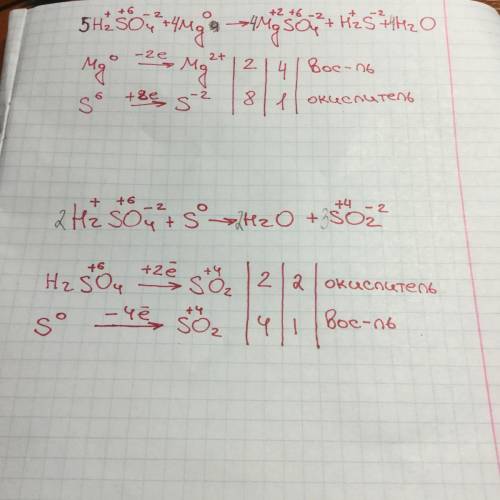 5H₂⁺S⁺⁶O₄⁻² + 4Mg⁰ → 4Mg⁺²S⁺⁶O₄⁻² + H₂⁺S⁻² + 4H₂O
Mg⁰ —-2e→ Mg²⁺ | 2 | 4 | вос-ль
S⁶ —+8e→ S⁻² | 8 | 1 | окислитель
2H₂⁺S⁺⁶O₄⁻² + S⁰ → 2H₂O + 3S⁺⁴O₂⁻²
H₂S⁺⁶O₄ —+2ē→ S⁺⁴O₂ | 2 | 2 | окислитель
S⁰ —-4ē→ S⁺⁴O₂ | 4 | 1 | вос-ль